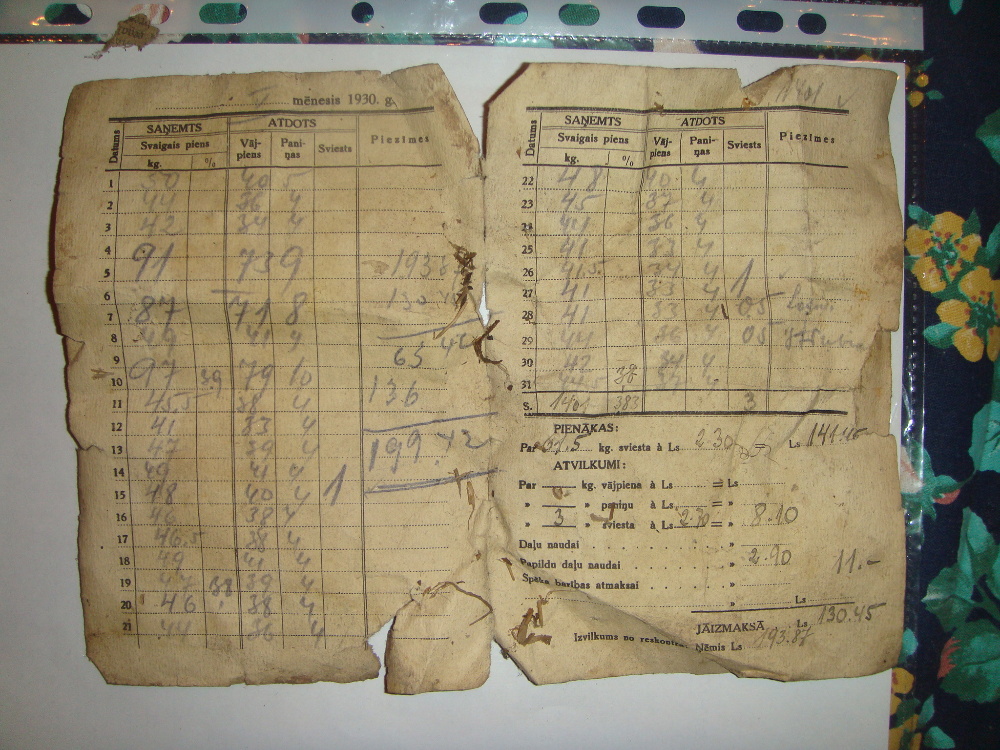 mēnesis 1930. g.
Datums SAŅEMTS ATDOTS Piezīmes
Svaigais piens Vāj-piens Pani-ņas Sviests
kg. %
1 50 40 5
2 44 36 4
3 42 34 4
4 91 73 9
5
6 87 71 8
7
8 49 41 4
9 97 79 10
10 39 136
11 45.5 38 4
12 41 33 4
13 47 39 4 199.72
14 49 41 4
15 48 40 4 1
16 46 38 4
17 46.5 38 4
18 49 41 4
19 47 39 4
20 46 38 4
21 44 36 4
Datums SAŅEMTS ATDOTS Piezīmes
Svaigais piens Vāj-piens Pani-ņas Sviests
kg. %
22 48 40 4
23 45 37 4
24 44 36 4
25 41 33 4
26 41.5 34 4 1
27 41 33 4
28 41 33 4 05
29 44 36 4 05
30 42 34 4
31
S. 1401 383 3
PIENĀKAS:
Par 61.5 kg. sviesta à Ls 2.30 = Ls 141.45
ATVILKUMI:
Par kg. vājpiena à Ls = Ls
» » paniņu à Ls = »
» 3 » sviesta à Ls 2.70 = » 8.10
Daļu naudai »
Papildu daļu naudai » 2.90 11.-
Spēka barības atmaksai »
» Ls
JĀIZMAKSĀ Ls 130.45
Izvilkums no reskontra: Ņēmis Ls 193.87